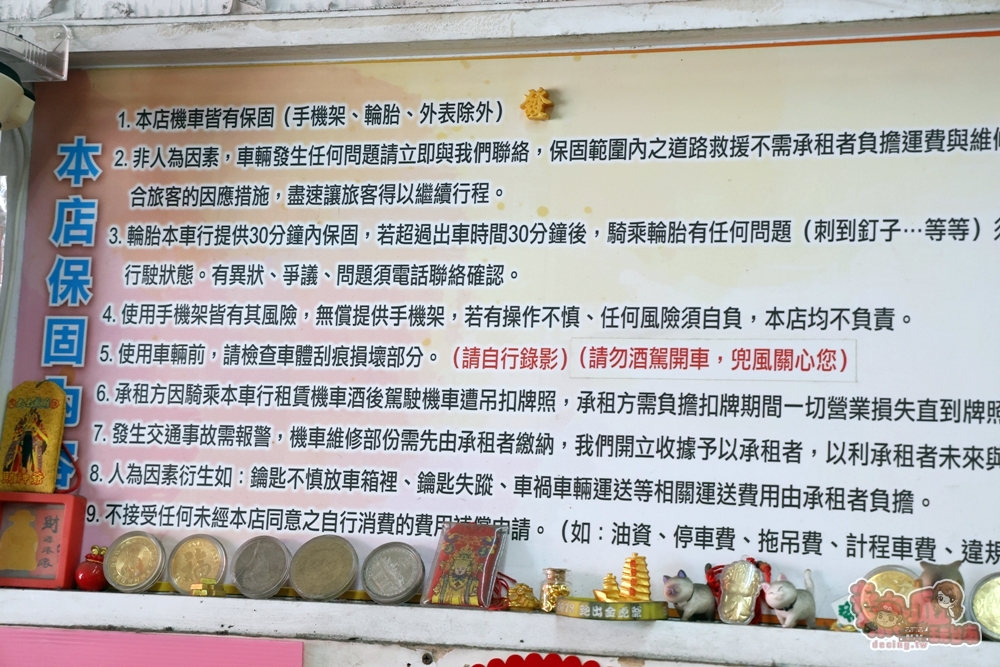 本店保固內容
1. 本店機車皆有保固（手機架、輪胎、外表除外）
2. 非人為因素，車輛發生任何問題請立即與我們聯絡，保固範圍內之道路救援不需承租者負擔運費與維
合旅客的因應措施，盡速讓旅客得以繼續行程。
3. 輪胎本車行提供30分鐘內保固，若超過出車時間30分鐘後，騎乘輪胎有任何問題（刺到釘子…等等）
行駛狀態。有異狀、爭議、問題須電話聯絡確認。
4. 使用手機架皆有其風險，無償提供手機架，若有操作不慎、任何風險須自負，本店均不負責。
5. 使用車輛前，請檢查車體刮痕損壞部分。（請自行錄影）（請勿酒駕開車，兜風關心您）
6. 承租方因騎乘本車行租賃機車酒後駕駛機車遭吊扣牌照，承租方需負擔扣牌期間一切營業損失直到牌照
7. 發生交通事故需報警，機車維修部份需先由承租者繳納，我們開立收據予以承租者，以利承租者未來與
8. 人為因素衍生如：鑰匙不慎放車箱裡、鑰匙失蹤、車禍車輛運送等相關運送費用由承租者負擔。
9. 不接受任何未經本店同意之自行消費的費用補償申請。（如：油資、停車費、拖吊費、計程車費、違規
財
decing.tw